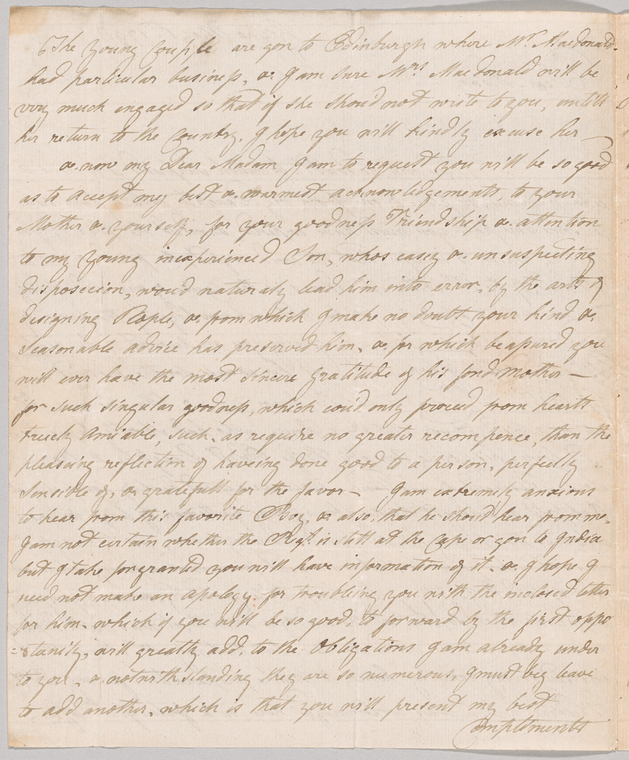 The young Couple are gon to Edinburgh where Mr. Macdonald
had particular business, & I am sure Mrs MacDonald will be
very much engaged so that if she should not write to you, untill
her return to the Country. I hope you will kindly excuse her —
& now my Dear Madam I am to request you will be so good
as to accept my best & warmest acknowledgements, to your
Mother & yourself, for your goodness Friendship & attention
to my young inexperienced Son, whos easey & unsuspecting
disposecion, would naturaly lead him into error, by the arts of
designing People, & from which I make no doubt your kind &
seasonable advice has preserved him, & for which be assured you
will ever have the most sincere gratitude of his fond Mother —
for such singular goodness, which could only proceed from hearts
truely Amiable, such as require no greater recompence, than the
pleasing reflection of haveing done good to a person, perfectly
sensible of, & gratefull for the favor — I am extremely anxious
to hear from this favorite Boy, & also that he should hear from me,
I am not certain whether the Regt. is still at the Cape or gon to India
but I take for granted you will have information of it. & I hope I
need not make an apology for troubling you with the inclosed letter
for him, which if you will be so good, to forward by the first oppo
=rtunity, will greatly add, to the Obligations I am already under
to you, & notwithstanding they are so numerous, I must beg leave
to add another, which is that you will present my best
Compliments